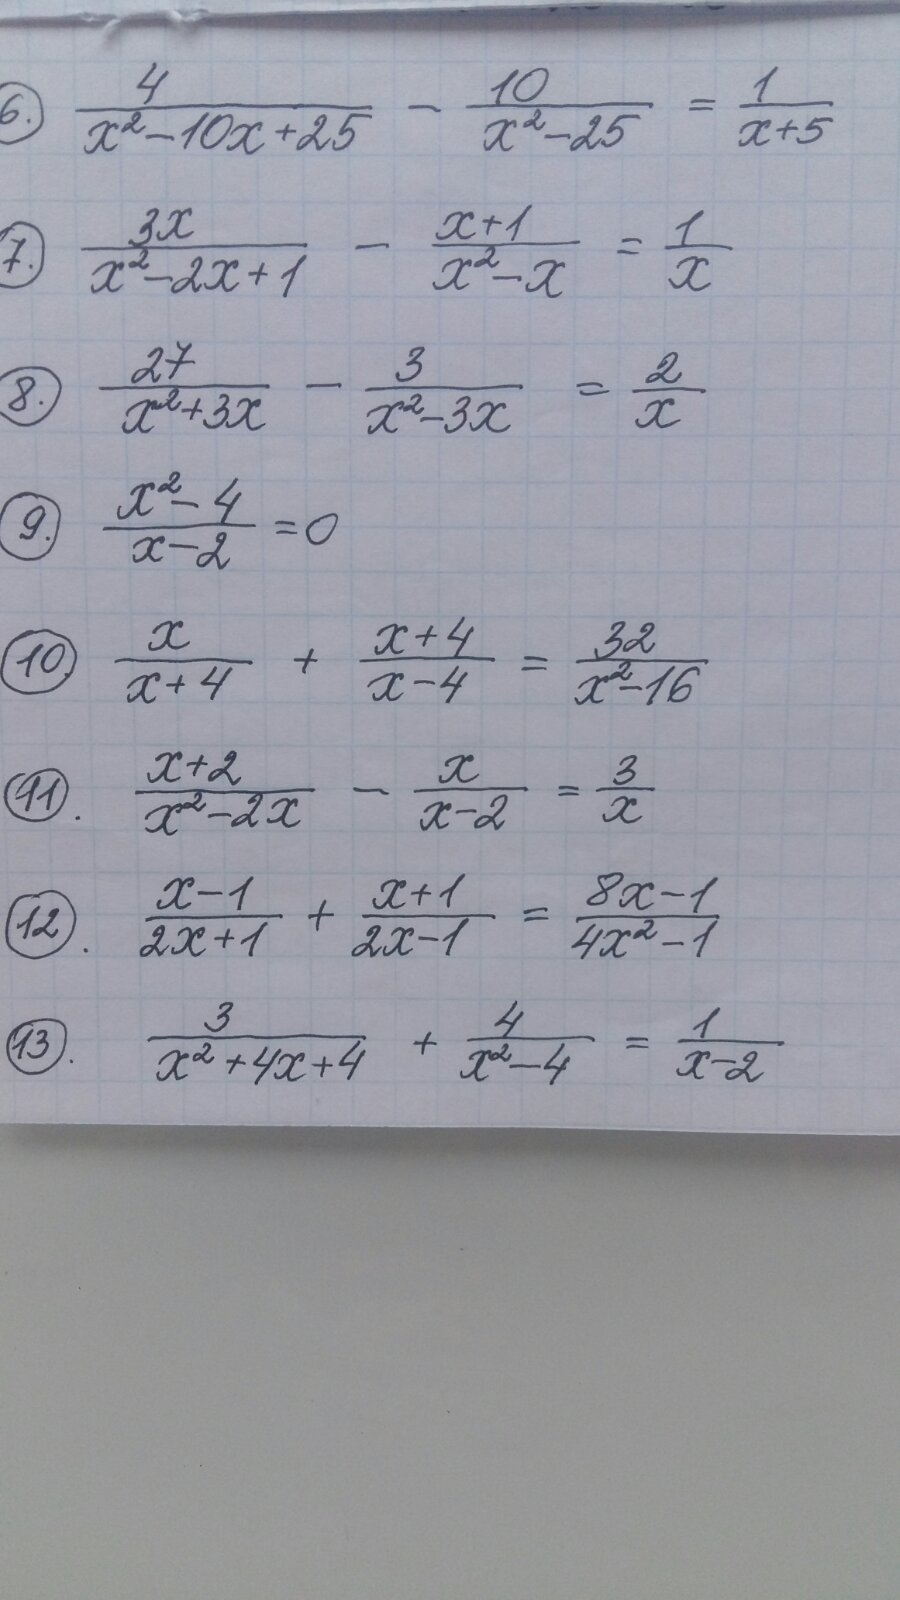 6. 4/(x²-10x+25) - 10/(x²-25) = 1/(x+5)
7. 3x/(x²-2x+1) - (x+1)/(x²-x) = 1/x
8. 27/(x²+3x) - 3/(x²-3x) = 2/x
9. (x²-4)/(x-2) = 0
10. x/(x+4) + (x+4)/(x-4) = 32/(x²-16)
11. (x+2)/(x²-2x) - x/(x-2) = 3/x
12. (x-1)/(2x+1) + (x+1)/(2x-1) = (8x-1)/(4x²-1)
13. 3/(x²+4x+4) + 4/(x²-4) = 1/(x-2)